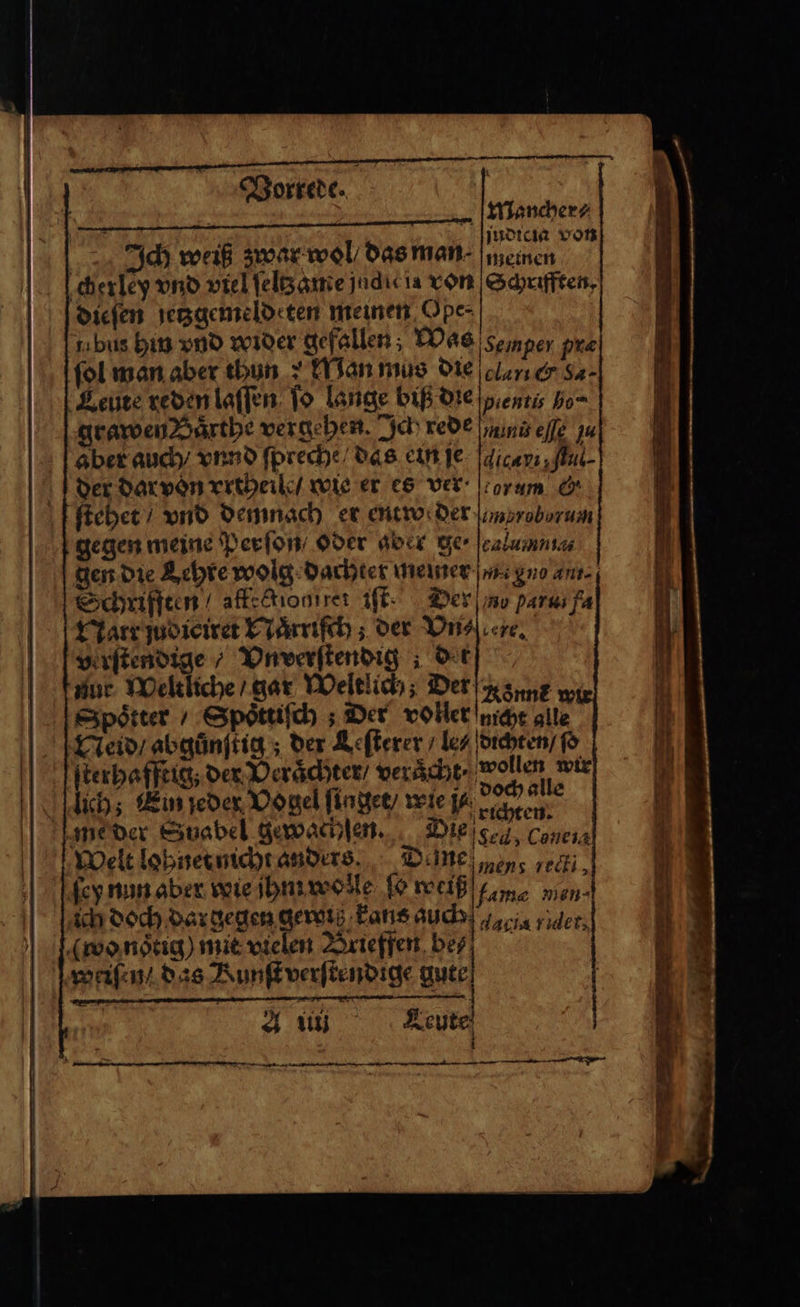 Vorrede.
Ich weiß zwar wol/ das man-
cherley vnd viel seltzame judicia von
diesen jetzgemeldeten meinen Ope-
ribus hin vnd wider gefallen; Was
sol man aber thun? Man mus die
Leute reden lassen so lange biß die
grawen Bårthe vergehen. Ich rede
aber auch/ vnnd spreche/ das ein je
der darvon vrtheile/ wie er es ver-
stehet/ vnd demnach er entweder
gegen meine Person/ oder aber ge-
gen die Lehre wolgedachter meiner
Schrifften/ affectioniret ist. Der
Narr judiciret Nårrisch; der Vn-
verstendige/ Vnverstendig; der
nur Weltliche/ gar Weltlich; Der
Spötter/ Spöttisch; Der voller
Neid/ abgůnstig; der Lesterer/ le-
sterhafftig; der Veråchter/ veråcht-
lich; Ein jeder Vogel singet/ wie j-
me der Snabel gewachsen. Die
Welt lohnet nicht anders. Deme
sey nun aber wie jhm wolle so weiß
ich doch dargegen gewiß/ kans auch
(wo nötig) mit vielen Brieffen be-
weisen/ das Kunstverstendige gute
Mancher-
judicia von
meinen
Schrifften.
Semper præ
clari & Sa-
pientis ho-
minis esse ju
dicavi, stul-
torum &
improborum
calumnias
magno ani-
mo parvi fa
cere.
Könnt wir
nicht alle
dichten/ so
wollen wir
doch alle
richten.
Sed, Conscia
mens recti,
famæ men-
dacia ridet.
A iiij
Leute